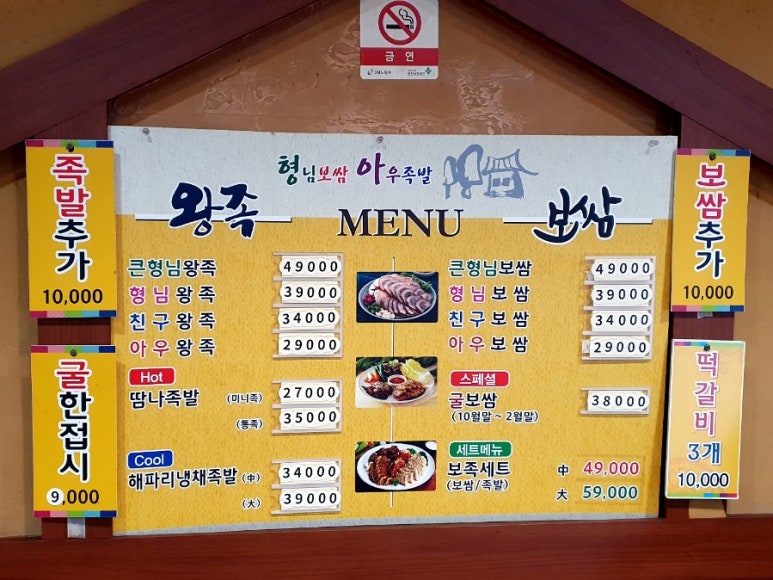 금연
형님보쌈 아우족발
왕족 MENU 보쌈
큰형님왕족 49000
형님왕족 39000
친구왕족 34000
아우왕족 29000
Hot
땀나족발 (미니족) 27000
(통족) 35000
Cool
해파리냉채족발 (中) 34000
(大) 39000
큰형님보쌈 49000
형님보쌈 39000
친구보쌈 34000
아우보쌈 29000
스페셜
굴보쌈 38000
(10월말~2월말)
세트메뉴
보족세트 中 49,000
(보쌈/족발) 大 59,000
족발추가
10,000
굴한접시
9,000
보쌈추가
10,000
떡갈비
3개
10,000